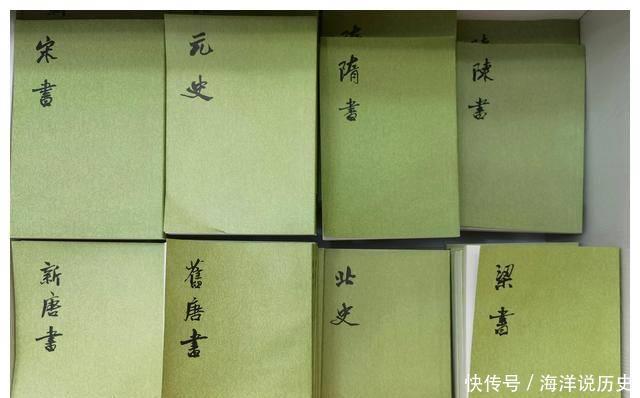 宋書
元史
隋書
陳書
新唐書
舊唐書
北史
梁書
快传号／海洋说历史